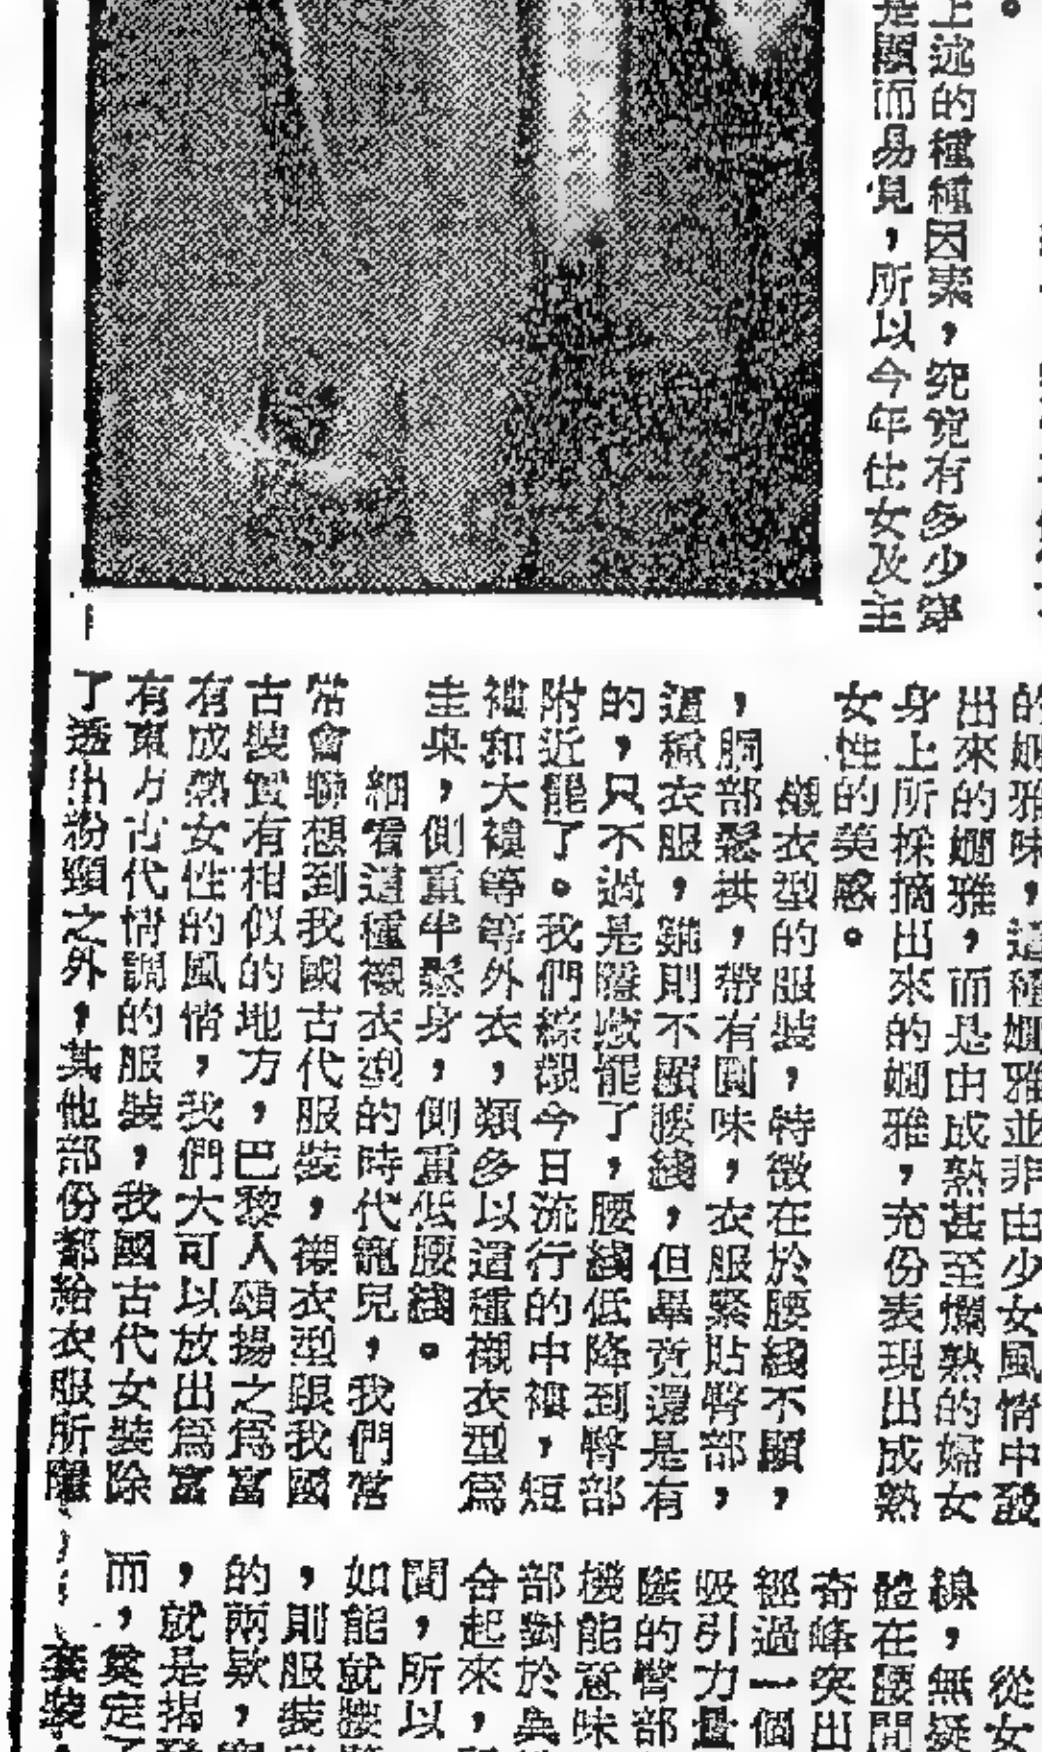 。
上述的種種因素，究竟有多少穿
是顯而易見，所以今年仕女及主
的嫻雅味，這種嫻雅並非由少女風情中散
出來的嫻雅，而是由成熟甚至爛熟的婦女
身上所採摘出來的嫻雅，充份表現出成熟
女性的美感。
襯衣型的服裝，特徵在於腰綫不顯，
，胴部鬆拱，帶有圓味，衣服緊貼臀部，
這種衣服，雖則不顯腰綫，但畢竟還是有
的，只不過是隱蔽罷了，腰綫低降到臀部
附近罷了。我們綜觀今日流行的中褸，短
褸和大褸等等外衣，類多以這種襯衣型爲
圭臬，側重半鬆身，側重低腰綫。
細看這種襯衣型的時代寵兒，我們當
常會聯想到我國古代服裝，襯衣型跟我國
古裝實有相似的地方，巴黎人頌揚之爲富
有成熟女性的風情，我們大可以放出爲富
有東方古代情調的服裝，我國古代女裝除
了透出粉頸之外，其他部份都給衣服所
從女
線，無疑
體在腰間
奇峰突出
經過一個
吸引力量
蔭的臀部
機能意味
部對於與
合起來，
間，所以
如能就腰
，則服裝
的兩欵，
，就是揭
而，奠定了
套裝，